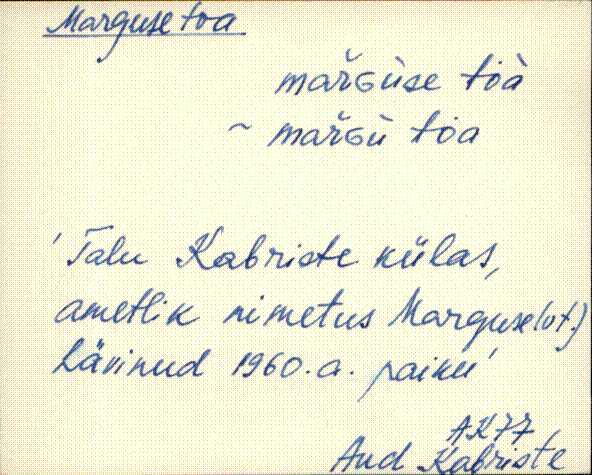 Marguse toa
marGuse toa
~ marGu toa
'Talu Kabriste külas,
ametlik nimetus Marguse (vt.)
Hävinud 1960.a. paiku'
AK77
Aud Kabriste